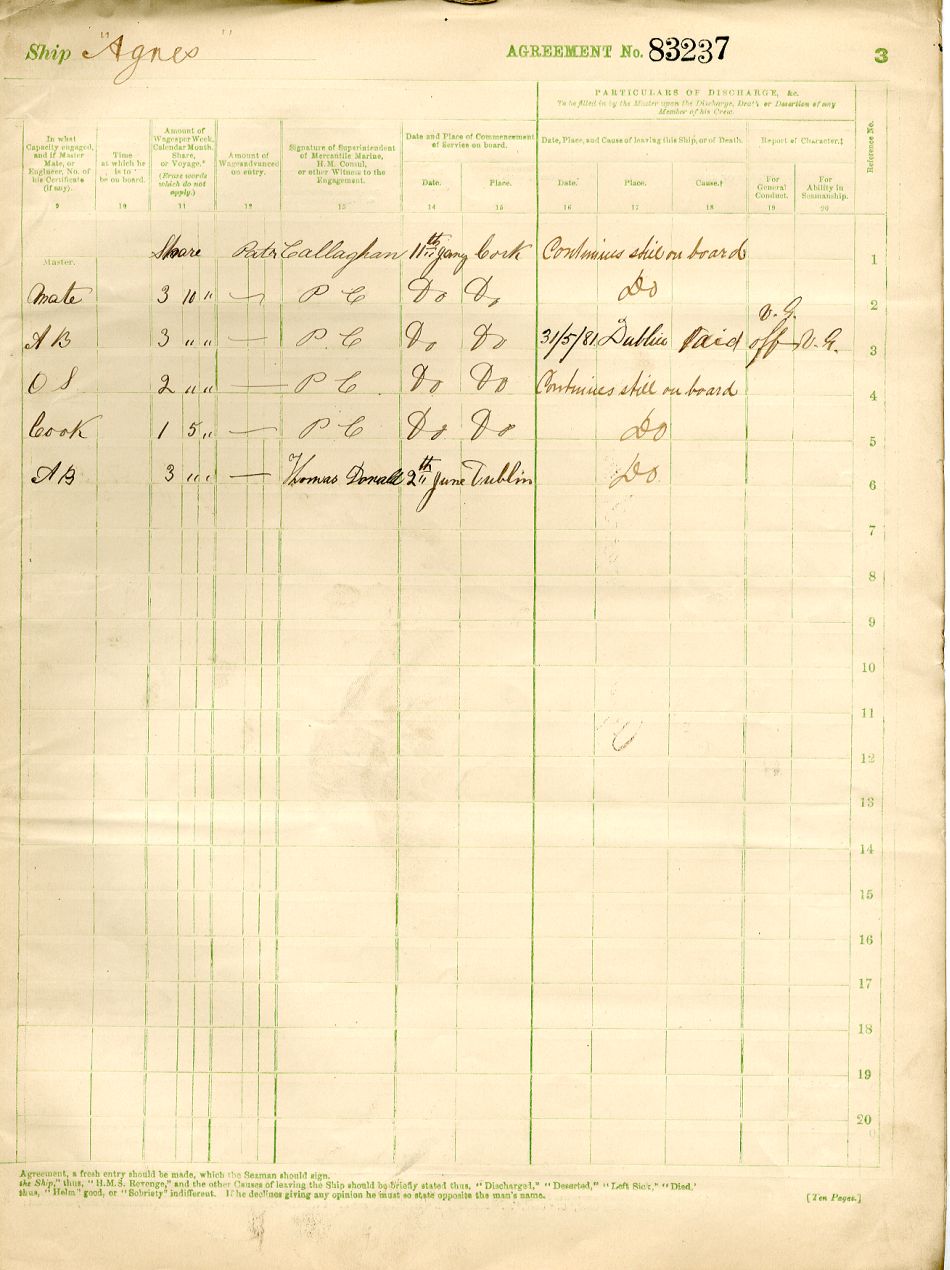 Ship "Agnes" AGREEMENT No. 83237 3
PARTICULARS OF DISCHARGE, &c.
To be filled in by the Master upon the Discharge, Death or Desertion of any
Member of his Crew.
In what Capacity engaged, and if Master Mate, or Engineer, No. of his Certificate (if any).
Time at which he is to be on board.
Amount of Wages per Week, Calendar Month, Share, or Voyage.* (Erase words which do not apply.)
Amount of Wages advanced on entry.
Signature of Superintendent of Mercantile Marine, H.M. Consul, or other Witness to the Engagement.
Date and Place of Commencement of Service on board.
Date. Place.
Date, Place, and Cause of leaving this Ship, or of Death.
Date. Place. Cause.†
Report of Character.‡
For General Conduct. For Ability in Seamanship.
Reference No.
9 10 11 12 13 14 15 16 17 18 19 20
Master. Share Patk Callaghan 11th Jany Cork Continues still on board 1
Mate 3 10 " — P C Do Do Do 2
A B 3 " " — P. C Do Do 31/5/81 Dublin Paid off V.G. V.G. 3
O S 2 " " — P C Do Do Continues still on board 4
Cook 1 5 " — P C Do Do Do 5
A B 3 " " — Thomas Donald 2th June Dublin Do 6
7
8
9
10
11
12
13
14
15
16
17
18
19
20
Agreement, a fresh entry should be made, which the Seaman should sign.
the Ship," thus, "H.M.S. Revenge," and the other Causes of leaving the Ship should be briefly stated thus, "Discharged," "Deserted," "Left Sick," "Died,"
thus, "Helm" good, or "Sobriety" indifferent. If he declines giving any opinion he must so state opposite the man's name.
[Ten Pages.]